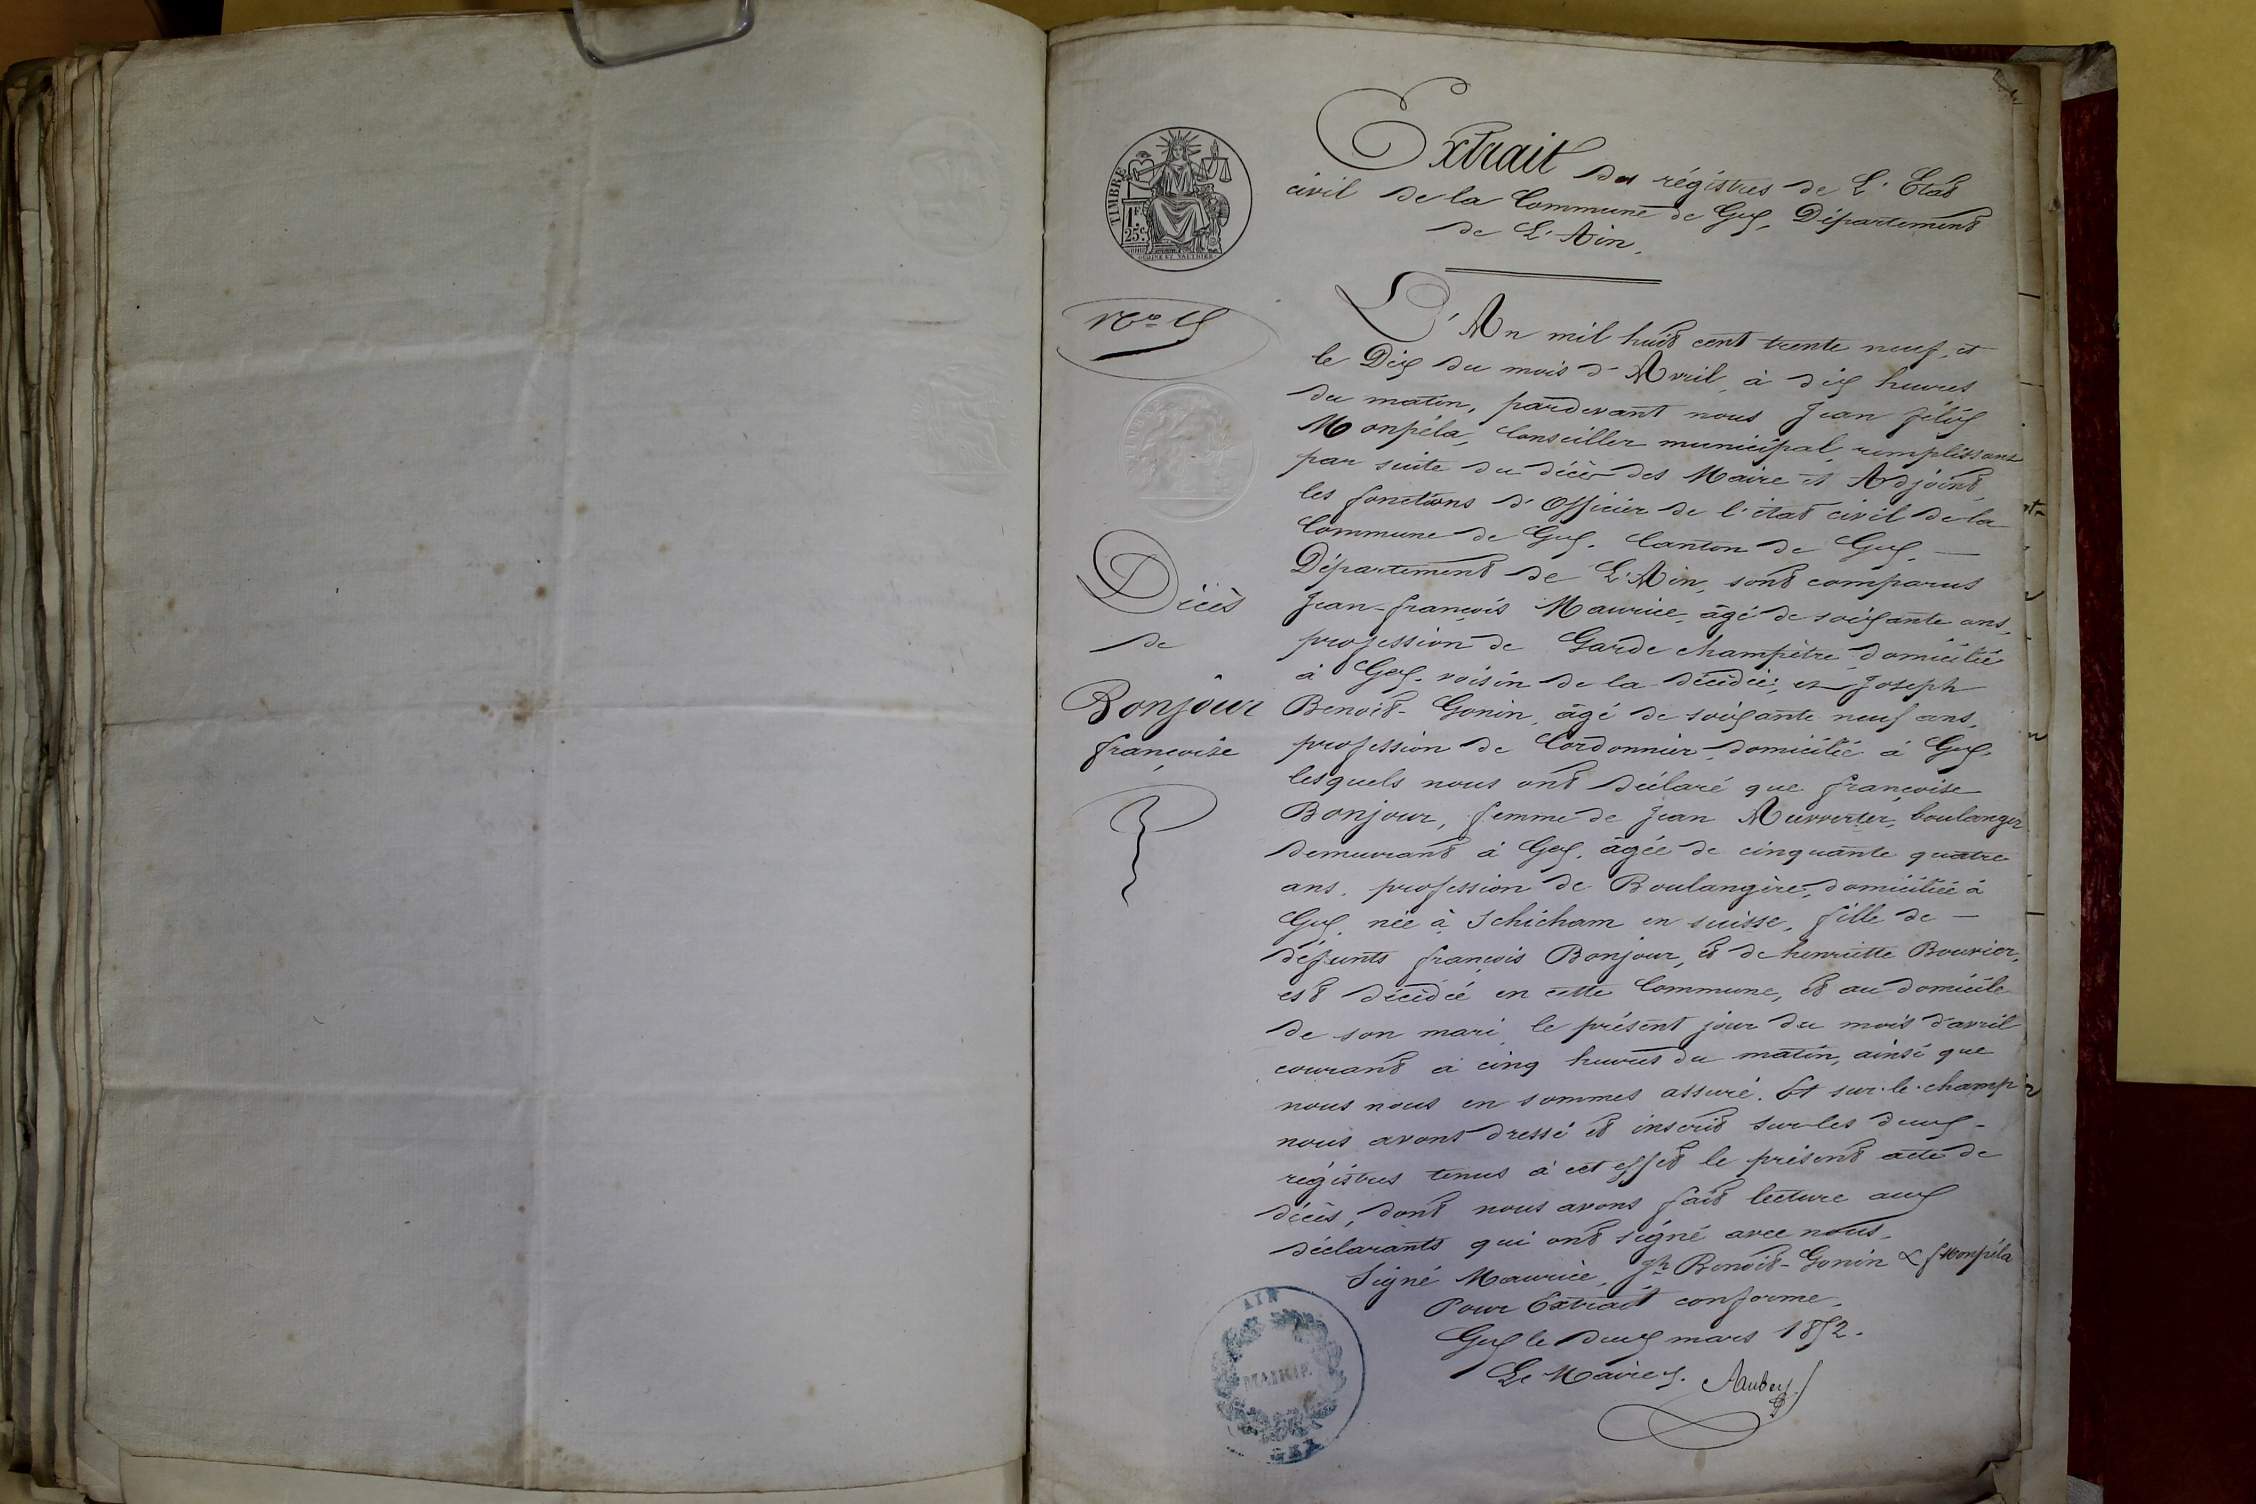 Extrait des régistres de L'Etat
civil de la Commune de Gex, Département
de L'Ain.
TIMBRE
1 F.
25 C.
L'An mil huit cent trente neuf, et
le Dix du mois d'Avril, à dix heures
du matin, pardevant nous Jean félix
Monpéla, Conseiller municipal, remplissant
par suite du décès des Maire et Adjoint,
les fonctions d'Officier de l'état civil de la
Commune de Gex, Canton de Gex, —
Département de L'Ain, sont comparus
Jean-françois Maurice, âgé de soixante ans,
profession de Garde champêtre, domicilié
à Gex, voisin de la décédée, et Joseph
Benoit-Gonin, âgé de soixante neuf ans,
profession de Cordonnier, domicilié à Gex,
lesquels nous ont déclaré que françoise
Bonjour, femme de Jean Meuverter, boulanger
demeurant à Gex, âgée de cinquante quatre
ans, profession de Boulangère, domiciliée à
Gex, née à Schicham en suisse, fille de —
défunts françois Bonjour, et de henriette Bouvier,
est décédée en cette Commune, et au domicile
de son mari, le présent jour du mois d'avril
courant à cinq heures du matin, ainsi que
nous nous en sommes assuré. Et sur-le-champ
nous avons dressé et inscrit sur les deux -
régistres tenus à cet effet le présent acte de
décès, dont nous avons fait lecture aux
déclarants qui ont signé avec nous.
Signé Maurice, Jh Benoit-Gonin & f Monpéla
Pour Extrait conforme.
Gex le deux mars 1852.
Le Maire
Décès
de
Bonjour
françoise
AIN
MAIRIE
GEX